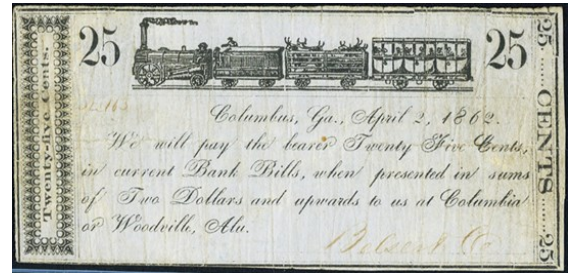 25
25
Twenty-five Cents.
25 CENTS 25
Columbus, Ga., April 2, 1862.
We will pay the bearer Twenty Five Cents,
in current Bank Bills, when presented in sums
of Two Dollars and upwards to us at Columbia
or Woodville, Ala.